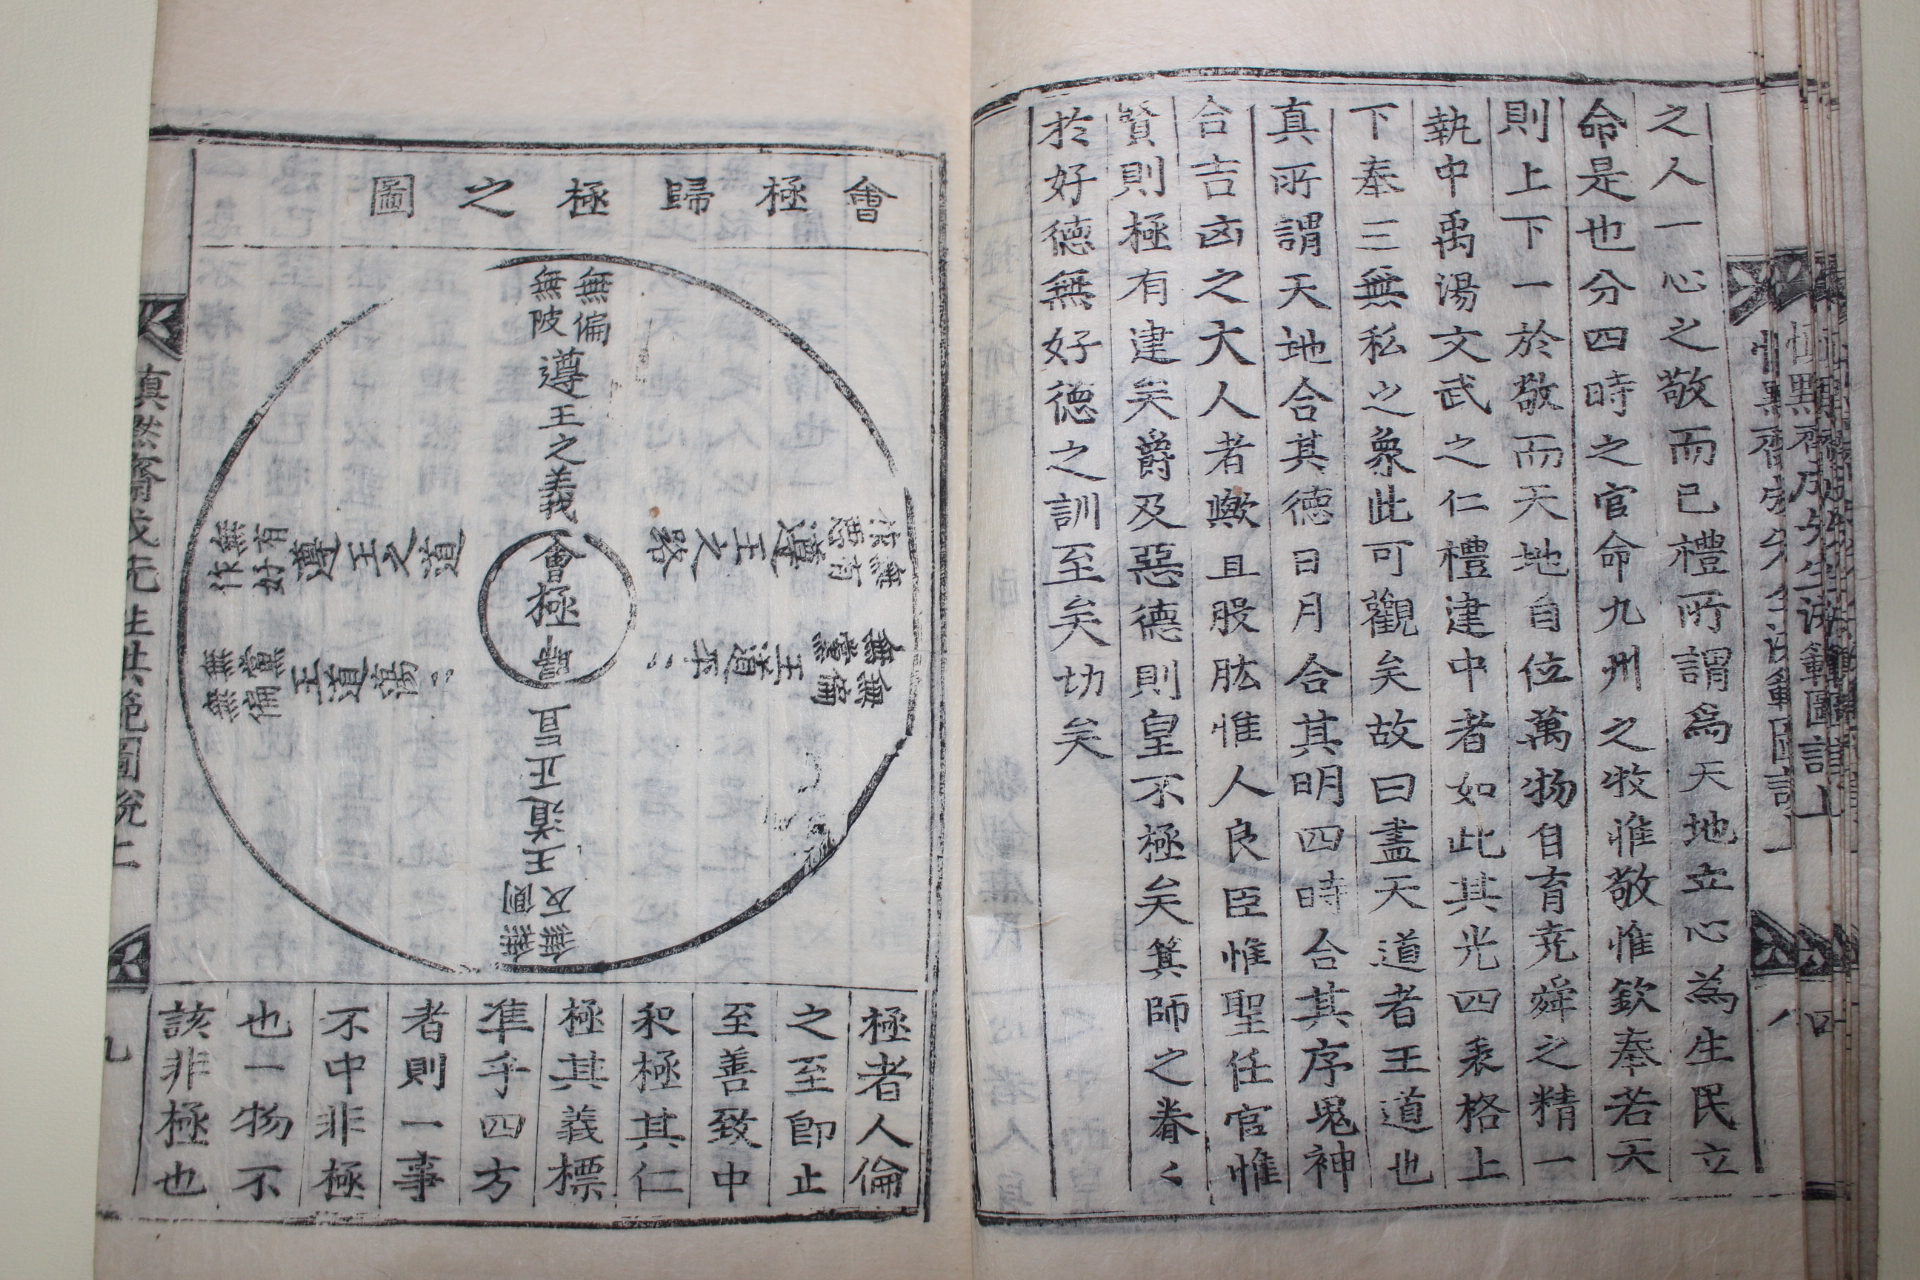 之人一心之敬而已禮所謂爲天地立心為生民立
命是也分四時之官命九州之牧惟敬惟欽奉若天
則上下一於敬而天地自位萬物自育尭舜之精一
執中禹湯文武之仁禮建中者如此其光四表格上
下奉三無私之象此可觀矣故曰盡天道者王道也
真所謂天地合其德日月合其明四時合其序鬼神
合吉凶之大人者歟且股肱惟人良臣惟聖任官惟
賢則極有建矣爵及惡德則皇不極矣箕師之眷〻
於好德無好德之訓至矣切矣
會極歸極之圖
無偏
無陂
遵王之義
無有
作惡
遵王之路
無偏
無黨
王道平〻
無
無
反
側
王道正直
無黨
無偏
王道蕩〻
無有
作好
遵王之道
會極
歸
極者人倫
之至卽止
至善致中
和極其仁
極其義標
準乎四方
者則一事
不中非極
也一物不
該非極也
九